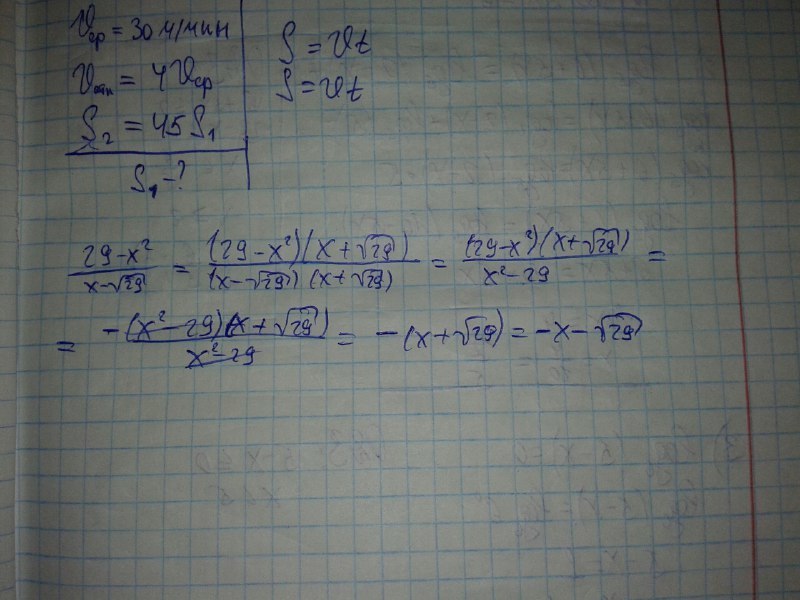 𝒱ср = 30 м/мин
𝒱отн = 4𝒱ср
S₂ = 45 S₁
S₁ – ?
S = 𝒱t
S = 𝒱t
(29 – x²)/(x – √29) = ((29 – x²)(x + √29))/((x – √29)(x + √29)) = ((29 – x²)(x + √29))/(x² – 29) =
= (–(x² – 29)(x + √29))/(x² – 29) = –(x + √29) = –x – √29